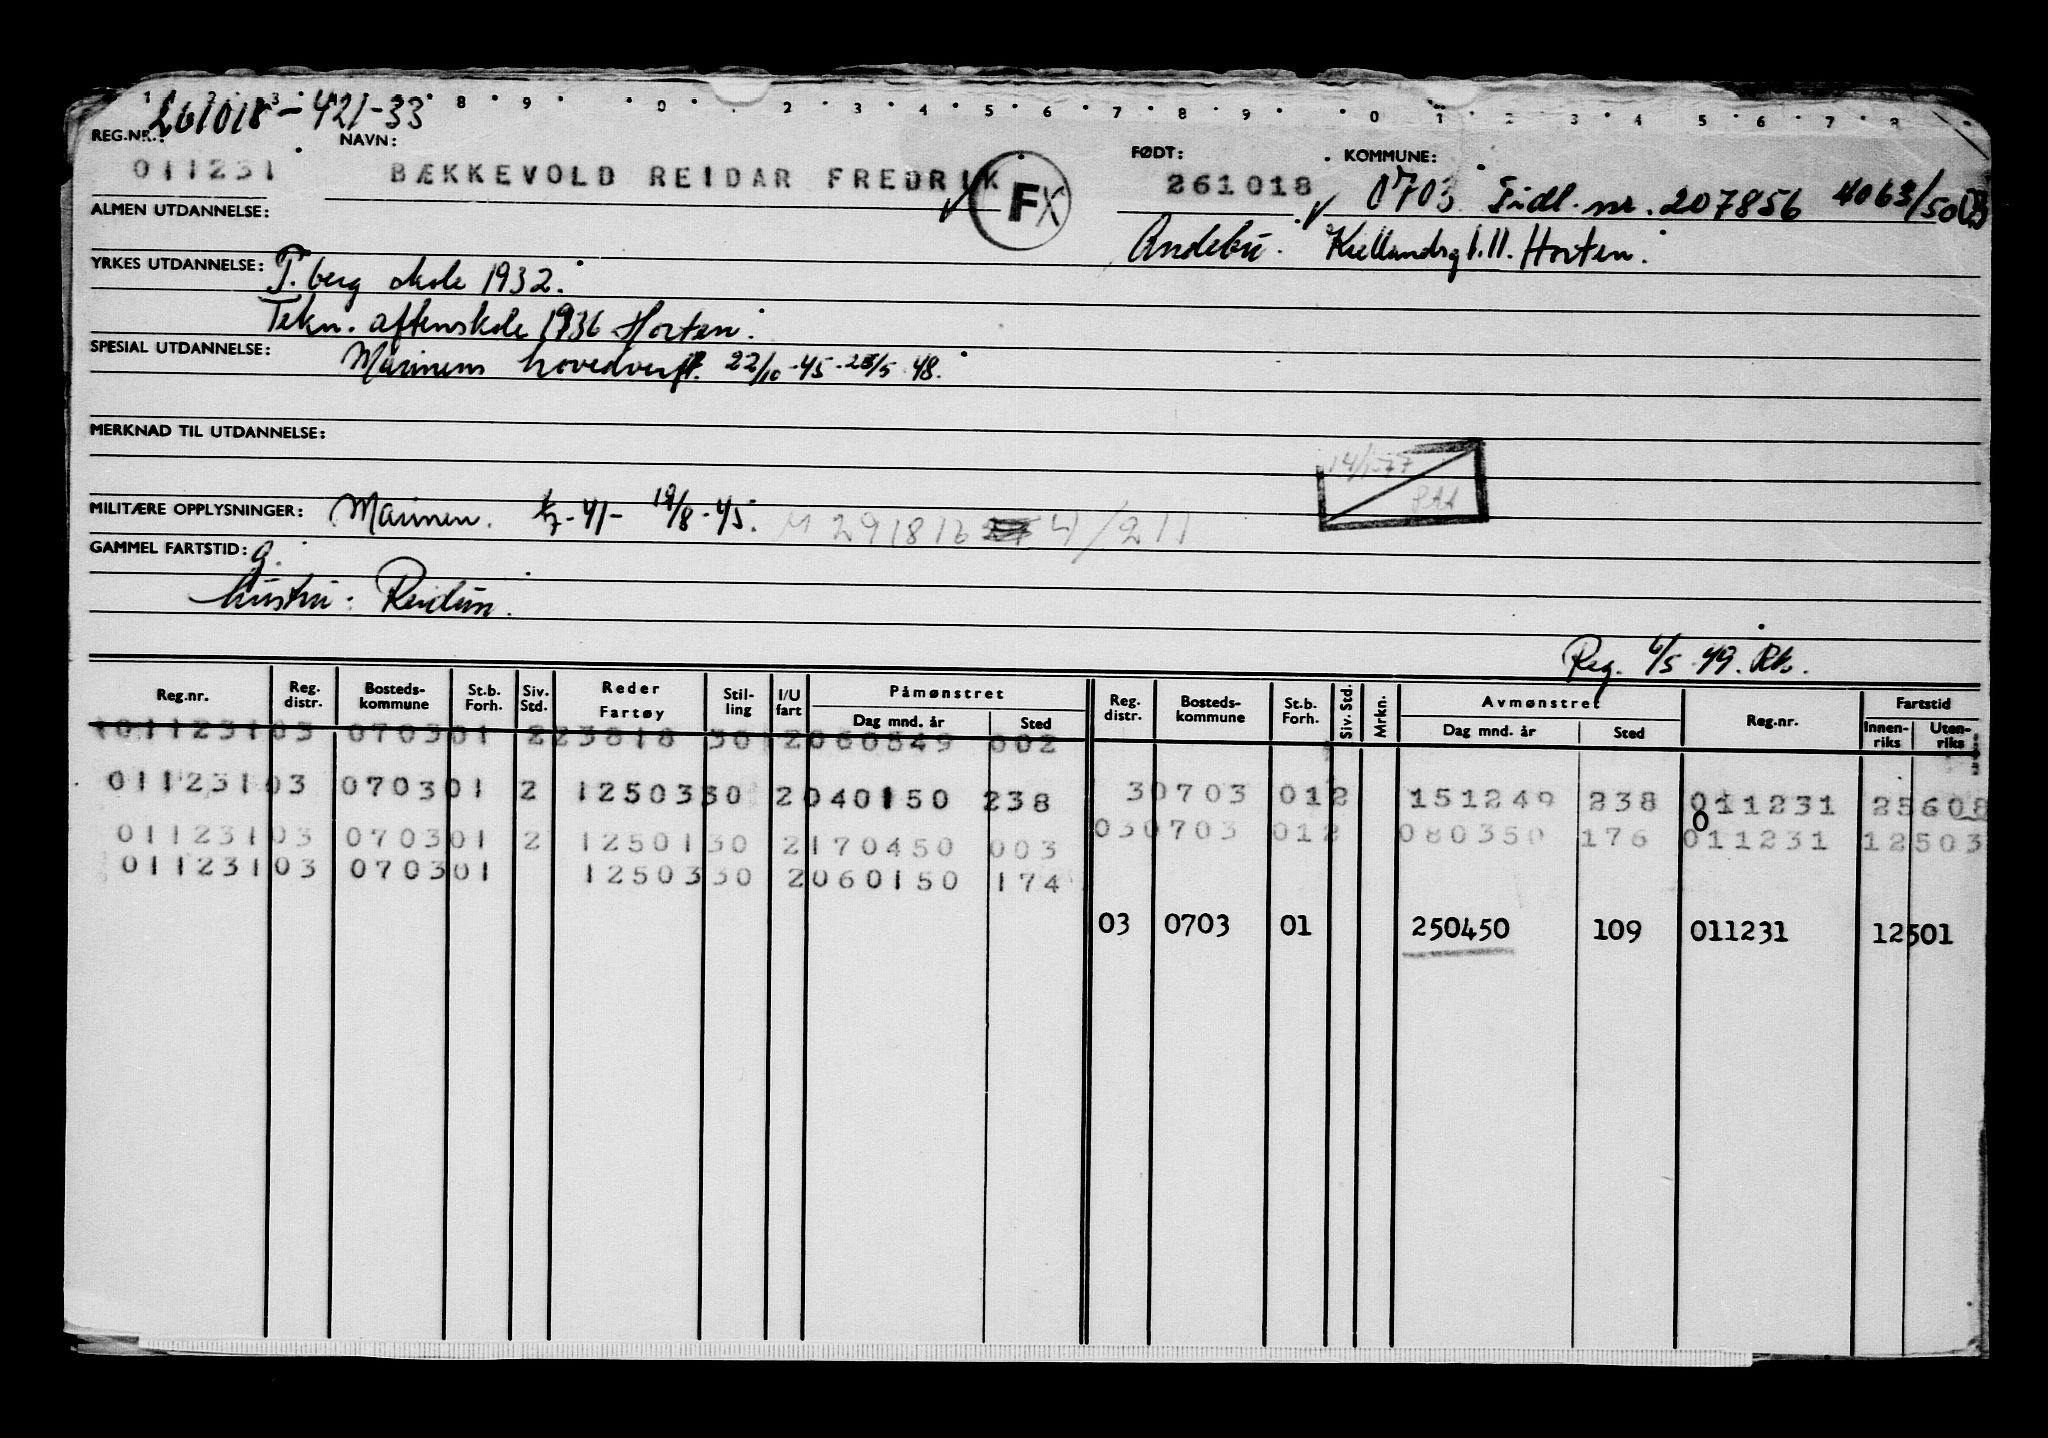 1 2 3 8 9 0 2 3 4 5 6 7 8 9 0 1 2 3 4 5 6 7 8
261018-421-33
REG.NR.: NAVN: FØDT: KOMMUNE:
011231 BÆKKEVOLD REIDAR FREDRIK FX 261018 0703 Tidl. nr. 207856 4063/50
ALMEN UTDANNELSE: Andebu. Kiellandsg 1.11. Horten.
YRKES UTDANNELSE: T.berg skole 1932.
Tekn. aftenskole 1936 Horten.
SPESIAL UTDANNELSE: Marinens hovedverft. 22/10-45-25/5 48.
MERKNAD TIL UTDANNELSE:
14/1-77
MILITÆRE OPPLYSNINGER: Marinen. 1/7-41- 19/8-45. M 291816 4/211
GAMMEL FARTSTID: g.
hustru: Reidun.
Reg. 6/5 49. Rh.
Reg.nr. Reg. distr. Bosteds-kommune St.b. Forh. Siv. Std. Reder Fartøy Stil-ling I/U fart Påmønstret Dag mnd. år Sted Reg. distr. Bosteds-kommune St.b. Forh. Siv. Std. Mrkn. Avmønstret Dag mnd. år Sted Reg.nr. Fartstid Innen-riks Uten-riks
011231 03 0703 01 2 23818 30 2 060849 002
011231 03 0703 01 2 12503 30 2 040150 238 3 0703 01 2 151249 238 011231 25608
0
011231 03 0703 01 2 12501 30 2 170450 003 03 0703 01 2 080350 176 011231 12503
011231 03 0703 01 12503 30 2 060150 174
03 0703 01 250450 109 011231 12501